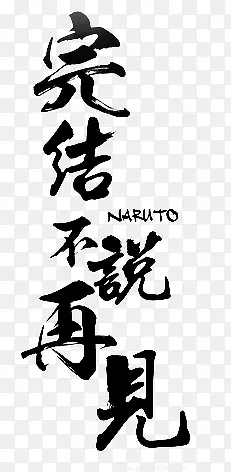 完结
NARUTO
不說
再見